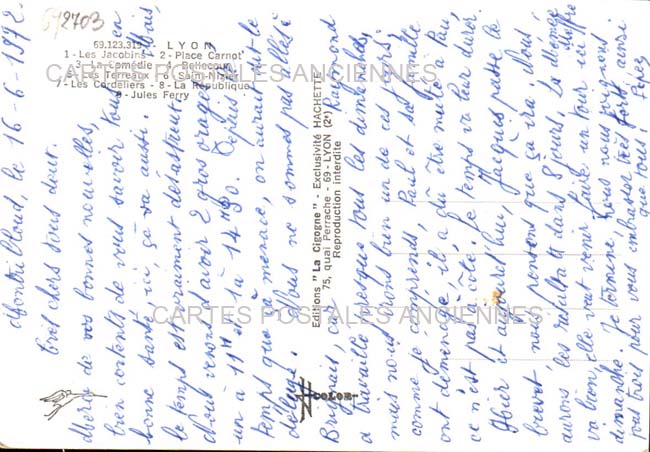 Montribloud, le 16-6-1972
Très chers tous deux.
Merci de vos bonnes nouvelles,
bien contents de vous savoir tous en
bonne santé, ici ça va aussi. Mais
le temps est vraiment désastreux.
Nous venons d'avoir 2 gros orages
un à 11H et 1 à 14H30. Depuis le
temps que ça menace, on aurait eu le
déluge. Nous ne sommes pas allés à
Brignais, ce Roger ont
à travaillé presque tous les dimanches,
mais nous irons bien un de ces jours.
comme je comprends Paul et sa famille
ont déménagé, il a dû être muté à Paris
ce n'est pas à côté. Le temps va leur durer.
Hier et aujourd'hui, Jacques passe le
brevet, nous pensons que ça ira. Nous
aurons les résultats dans 8 jours. La
va bien, elle veut venir faire un tour ici
dimanche. Je termine, tous nous
tous trois pour vous embrasser très fort ainsi
que tous
692703
69.123.319. - LYON
1 - Les Jacobins - 2 - Place Carnot
3 - La Comédie - 4 - Bellecour
5 - Les Terreaux - 6 - Saint-Nizier
7 - Les Cordeliers - 8 - La République
9 - Jules Ferry
Editions "La Cigogne" - Exclusivité HACHETTE
75, quai Perrache - 69 - LYON (2e)
Reproduction interdite
COLOR
CARTES POSTALES ANCIENNES
CARTES POSTALES ANCIENNES